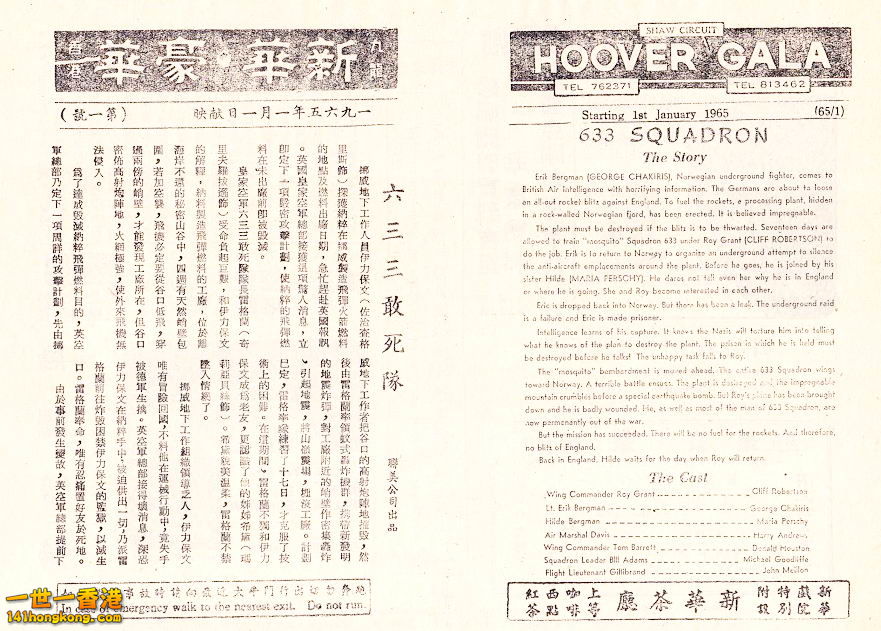 九龍 新華•豪華 香港
一九六五年一月一日獻映 （第一號）
六三三敢死隊
聯美公司出品
挪威地下工作人員伊力保文（佐治滄格
里斯飾）探獲納粹在挪威製造飛彈火箭燃料
的地點及燃料出廠日期，急忙趕赴英國報訊
。英國皇家空軍總部接獲這項驚人消息，立
即定下一項嚴密攻擊計劃，使納粹的飛彈燃
料在未出廠前即被毀滅。
皇家空軍六三三敢死隊隊長雷格蘭（奇
里夫羅拔遜飾）受命負起巨艱，和伊力保文
的解釋，納料製造飛彈燃料的工廠，位於離
海岸不遠的秘密山谷中，四週有天然峭壁包
圍，若加空襲，飛機必定要從谷口低飛，穿
過兩傍的峭壁，才能發現工廠所在，但谷口
密佈高射炮陣地，火網極強，使外來飛機無
法侵入。
為了達成毀滅納粹飛彈燃料目的，英空
軍總部乃定下一項周詳的攻擊計劃，先由挪
威地下工作者把谷口的高射炮陣地摧毀，然
後由雷格蘭率領蚊式轟炸機群，携帶新發明
的地震炸彈，對工廠附近的峭壁作密集轟炸
，引起地震，將山嶺震塌，埋沒工廠。計劃
已定，雷格率衆練習了十七日，才克服了技
術上的困難。在這期間，雷格蘭不獨和伊力
保文成為老友，更認識了他的姊姊希黛（瑪
莉亞貝絲飾）。希黛艷美溫柔，雷格蘭不禁
墜入情網了。
挪威地下工作組織領導乏人，伊力保文
唯有冒險回國，不料他在運械行動中，竟失手
被德軍生擒。英空軍總部接得壞消息，深恐
伊力保文在納粹手中，被迫供出一切，乃派雷
格蘭前往炸毀囚禁伊力保文的監獄，以滅生
口。雷格蘭奉命，唯有忍痛置好友於死地。
由於事前發生變故，英空軍總部提前下
In case of emergency walk to the nearest exit. Do not run.
一世一香港
141hongkong.com
SHAW CIRCUIT
HOOVER GALA
TEL 762371 TEL 813462
Starting 1st January 1965 (65/1)
633 SQUADRON
The Story
Erik Bergman (GEORGE CHAKIRIS), Norwegian underground fighter, comes to
British Air intelligence with horrifying information. The Germans are about to loose
an all-out rocket blitz against England. To fuel the rockets, a processing plant, hidden
in a rock-walled Norwegian fjord, has been erected. It is believed impregnable.
The plant must be destroyed if the blitz is to be thwarted. Seventeen days are
allowed to train "mosquito" Squadron 633 under Roy Grant (CLIFF ROBERTSON) to
do the job. Erik is to return to Norway to organize an underground attempt to silence
the anti-aircraft emplacements around the plant. Before he goes, he is joined by his
sister Hilde (MARIA PERSCHY). He dares not tell even her why he is in England
or where he is going. She and Roy become interested in each other.
Eric is dropped back into Norway. But there has been a leak. The underground raid
is a failure and Eric is made prisoner.
Intelligence learns of his capture. It knows the Nazis will torture him into telling
what he knows of the plan to destroy the plant. The prison in which he is held must
be destroyed before he talks! The unhappy task falls to Roy.
The "mosquito" bombardment is moved ahead. The entire 633 Squadron wings
toward Norway. A terrible battle ensues. The plant is destroyed and the impregnable
mountain crumbles before a special earthquake bomb. But Roy's plane has been brought
down and he is badly wounded. He, as well as most of the men of 633 Squadron, are
now permanently out of the war.
But the mission has succeeded. There will be no fuel for the rockets. And therefore,
no blitz of England.
Back in England, Hilde waits for the day when Roy will return.
The Cast
Wing Commander Roy Grant Cliff Robertson
Lt. Erik Bergman George Chakiris
Hilde Bergman Maria Perschy
Air Marshal Davis Harry Andrews
Wing Commander Tom Barrett Donald Houston
Squadron Leader Bill Adams Michael Goodliffe
Flight Lieutenant Gillibrand John Meillon
新華戲院特別附設 新華茶廳 上等咖啡西點紅茶